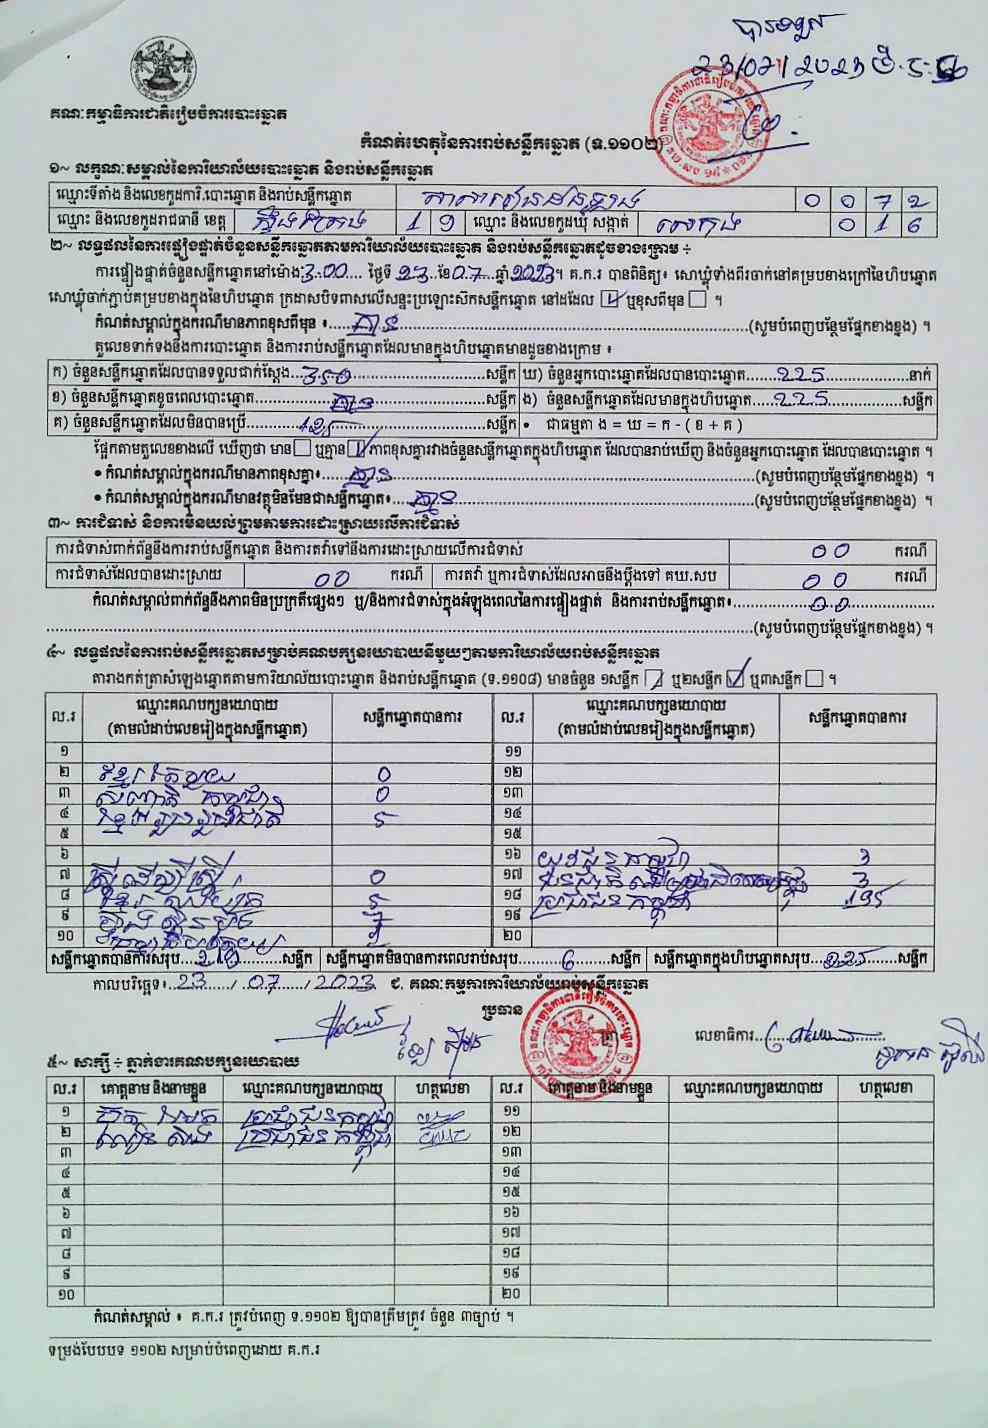 23/07/2023
គណៈកម្មាធិការជាតិរៀបចំការបោះឆ្នោត
កំណត់ហេតុនៃការរាប់សន្លឹកឆ្នោត (ទ.១១០២)
១~ លក្ខណៈសម្គាល់នៃការិយាល័យបោះឆ្នោត និងរាប់សន្លឹកឆ្នោត
ឈ្មោះទីតាំង និងលេខកូដការិ.បោះឆ្នោត និងរាប់សន្លឹកឆ្នោត 0 0 7 2
ឈ្មោះ និងលេខកូដរាជធានី ខេត្ត ស្ទឹងត្រែង 1 9 ឈ្មោះ និងលេខកូដឃុំ សង្កាត់ សេកុង 0 1 6
២~ លទ្ធផលនៃការផ្ទៀងផ្ទាត់ចំនួនសន្លឹកឆ្នោតតាមការិយាល័យបោះឆ្នោត និងរាប់សន្លឹកឆ្នោតដូចខាងក្រោម ÷
ការផ្ទៀងផ្ទាត់ចំនួនសន្លឹកឆ្នោតនៅម៉ោង 3:00 ថ្ងៃទី 23 ខែ 07 ឆ្នាំ 2023។ គ.ក.រ បានពិនិត្យ៖ សោឃ្មុំទាំងពីរចាក់នៅគម្របខាងក្រៅនៃហិបឆ្នោត
សោឃ្មុំចាក់ភ្ជាប់គម្របខាងក្នុងនៃហិបឆ្នោត ក្រដាសបិទពាសលើសន្ទះប្រឡោះស៊កសន្លឹកឆ្នោត នៅដដែល ☑ ឬខុសពីមុន ☐ ។
កំណត់សម្គាល់ក្នុងករណីមានភាពខុសពីមុន ៖ គ្មាន (សូមបំពេញបន្ថែមផ្នែកខាងខ្នង) ។
តួលេខទាក់ទងនឹងការបោះឆ្នោត និងការរាប់សន្លឹកឆ្នោតដែលមានក្នុងហិបឆ្នោតមានដូចខាងក្រោម ៖
ក) ចំនួនសន្លឹកឆ្នោតដែលបានទទួលជាក់ស្តែង 350 សន្លឹក ឃ) ចំនួនអ្នកបោះឆ្នោតដែលបានបោះឆ្នោត 225 នាក់
ខ) ចំនួនសន្លឹកឆ្នោតខូចពេលបោះឆ្នោត គ្មាន សន្លឹក ង) ចំនួនសន្លឹកឆ្នោតដែលមានក្នុងហិបឆ្នោត 225 សន្លឹក
គ) ចំនួនសន្លឹកឆ្នោតដែលមិនបានប្រើ 125 សន្លឹក • ជាធម្មតា ង = ឃ = ក - ( ខ + គ )
ផ្អែកតាមតួលេខខាងលើ ឃើញថា មាន ☐ ឬគ្មាន ☑ ភាពខុសគ្នារវាងចំនួនសន្លឹកឆ្នោតក្នុងហិបឆ្នោត ដែលបានរាប់ឃើញ និងចំនួនអ្នកបោះឆ្នោត ដែលបានបោះឆ្នោត ។
• កំណត់សម្គាល់ក្នុងករណីមានភាពខុសគ្នា៖ គ្មាន (សូមបំពេញបន្ថែមផ្នែកខាងខ្នង) ។
• កំណត់សម្គាល់ក្នុងករណីមានវត្ថុមិនមែនជាសន្លឹកឆ្នោត៖ គ្មាន (សូមបំពេញបន្ថែមផ្នែកខាងខ្នង) ។
៣~ ការជំទាស់ និងការមិនយល់ព្រមតាមការដោះស្រាយលើការជំទាស់
ការជំទាស់ពាក់ព័ន្ធនឹងការរាប់សន្លឹកឆ្នោត និងការតវ៉ាទៅនឹងការដោះស្រាយលើការជំទាស់ 00 ករណី
ការជំទាស់ដែលបានដោះស្រាយ 00 ករណី ការតវ៉ា ឬការជំទាស់ដែលអាចនឹងប្តឹងទៅ គឃ.សប 00 ករណី
កំណត់សម្គាល់ពាក់ព័ន្ធនឹងភាពមិនប្រក្រតីផ្សេងៗ ឬ/និងការជំទាស់ក្នុងអំឡុងពេលនៃការផ្ទៀងផ្ទាត់ និងការរាប់សន្លឹកឆ្នោត៖ 00
(សូមបំពេញបន្ថែមផ្នែកខាងខ្នង) ។
៤~ លទ្ធផលនៃការរាប់សន្លឹកឆ្នោតសម្រាប់គណបក្សនយោបាយនីមួយៗតាមការិយាល័យរាប់សន្លឹកឆ្នោត
តារាងកត់ត្រាសំឡេងឆ្នោតតាមការិយាល័យបោះឆ្នោត និងរាប់សន្លឹកឆ្នោត (ទ.១១០៨) មានចំនួន ១សន្លឹក ☐ ឬ២សន្លឹក ☑ ឬ៣សន្លឹក ☐ ។
ល.រ ឈ្មោះគណបក្សនយោបាយ (តាមលំដាប់លេខរៀងក្នុងសន្លឹកឆ្នោត) សន្លឹកឆ្នោតបានការ ល.រ ឈ្មោះគណបក្សនយោបាយ (តាមលំដាប់លេខរៀងក្នុងសន្លឹកឆ្នោត) សន្លឹកឆ្នោតបានការ
១ ១១
២ 0 ១២
៣ 0 ១៣
៤ 5 ១៤
៥ ១៥
៦ ១៦ 3
៧ 0 ១៧ 3
៨ 5 ១៨ ប្រជាជនកម្ពុជា 195
៩ ១៩
១០ ២០
សន្លឹកឆ្នោតបានការសរុប សន្លឹក សន្លឹកឆ្នោតមិនបានការពេលរាប់សរុប 6 សន្លឹក សន្លឹកឆ្នោតក្នុងហិបឆ្នោតសរុប 225 សន្លឹក
កាលបរិច្ឆេទ៖ 23 / 07 / 2023 ជ. គណៈកម្មការការិយាល័យរាប់សន្លឹកឆ្នោត
ប្រធាន
លេខាធិការ
៥~ សាក្សី ÷ ភ្នាក់ងារគណបក្សនយោបាយ
ល.រ គោត្តនាម និងនាមខ្លួន ឈ្មោះគណបក្សនយោបាយ ហត្ថលេខា ល.រ គោត្តនាម និងនាមខ្លួន ឈ្មោះគណបក្សនយោបាយ ហត្ថលេខា
១ ប្រជាជនកម្ពុជា ១១
២ ប្រជាជនកម្ពុជា ១២
៣ ១៣
៤ ១៤
៥ ១៥
៦ ១៦
៧ ១៧
៨ ១៨
៩ ១៩
១០ ២០
កំណត់សម្គាល់ ៖ គ.ក.រ ត្រូវបំពេញ ទ.១១០២ ឱ្យបានត្រឹមត្រូវ ចំនួន ៣ច្បាប់ ។
ទម្រង់បែបបទ ១១០២ សម្រាប់បំពេញដោយ គ.ក.រ